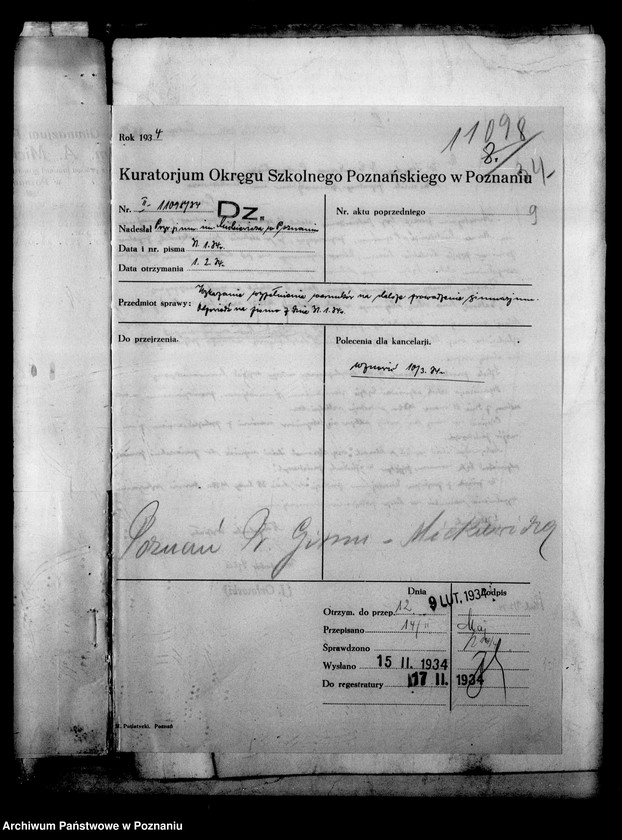 11098
8.
34.
Rok 1934
Kuratorjum Okręgu Szkolnego Poznańskiego w Poznaniu
Nr. II-11098/34
Dz.
Nr. aktu poprzedniego
9
Nadesłał Pryw. gimn. im. Mickiewicza w Poznaniu
Data i nr. pisma 31.1.34.
Data otrzymania 1.2.34.
Przedmiot sprawy: Wykazanie wypełnienia warunków na dalsze prowadzenie gimnazjum.
Odpowiedź na pismo z dnia 31.1.34.
Do przejrzenia.
Polecenia dla kancelarji.
wznowić 10/3.34.
Poznań Pr. Gimn - Mickiewicza
Dnia
Podpis
Otrzym. do przep. 12.
9 LUT. 1934
Przepisano 14/II
Maj
Sprawdzono
Wysłano 15 II. 1934
Do regestratury 17 II. 1934
Posłatycki. Poznań
Archiwum Państwowe w Poznaniu